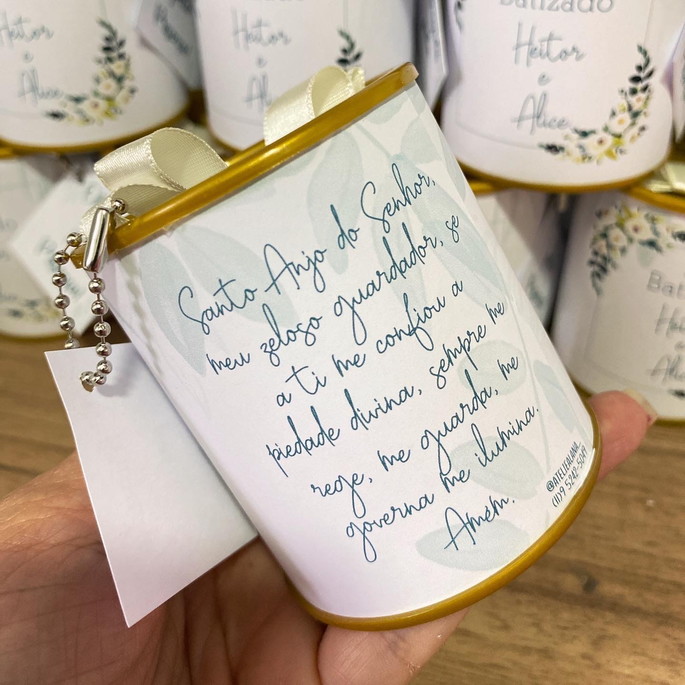 Heitor
e
Alice
Heitor
e
Batizado
Heitor
e
Alice
Santo Anjo do Senhor,
meu zeloso guardador, se
a ti me confiou a
piedade divina, sempre me
rege, me guarda, me
governa me ilumina.
Amém.
(11)9 5242-5049